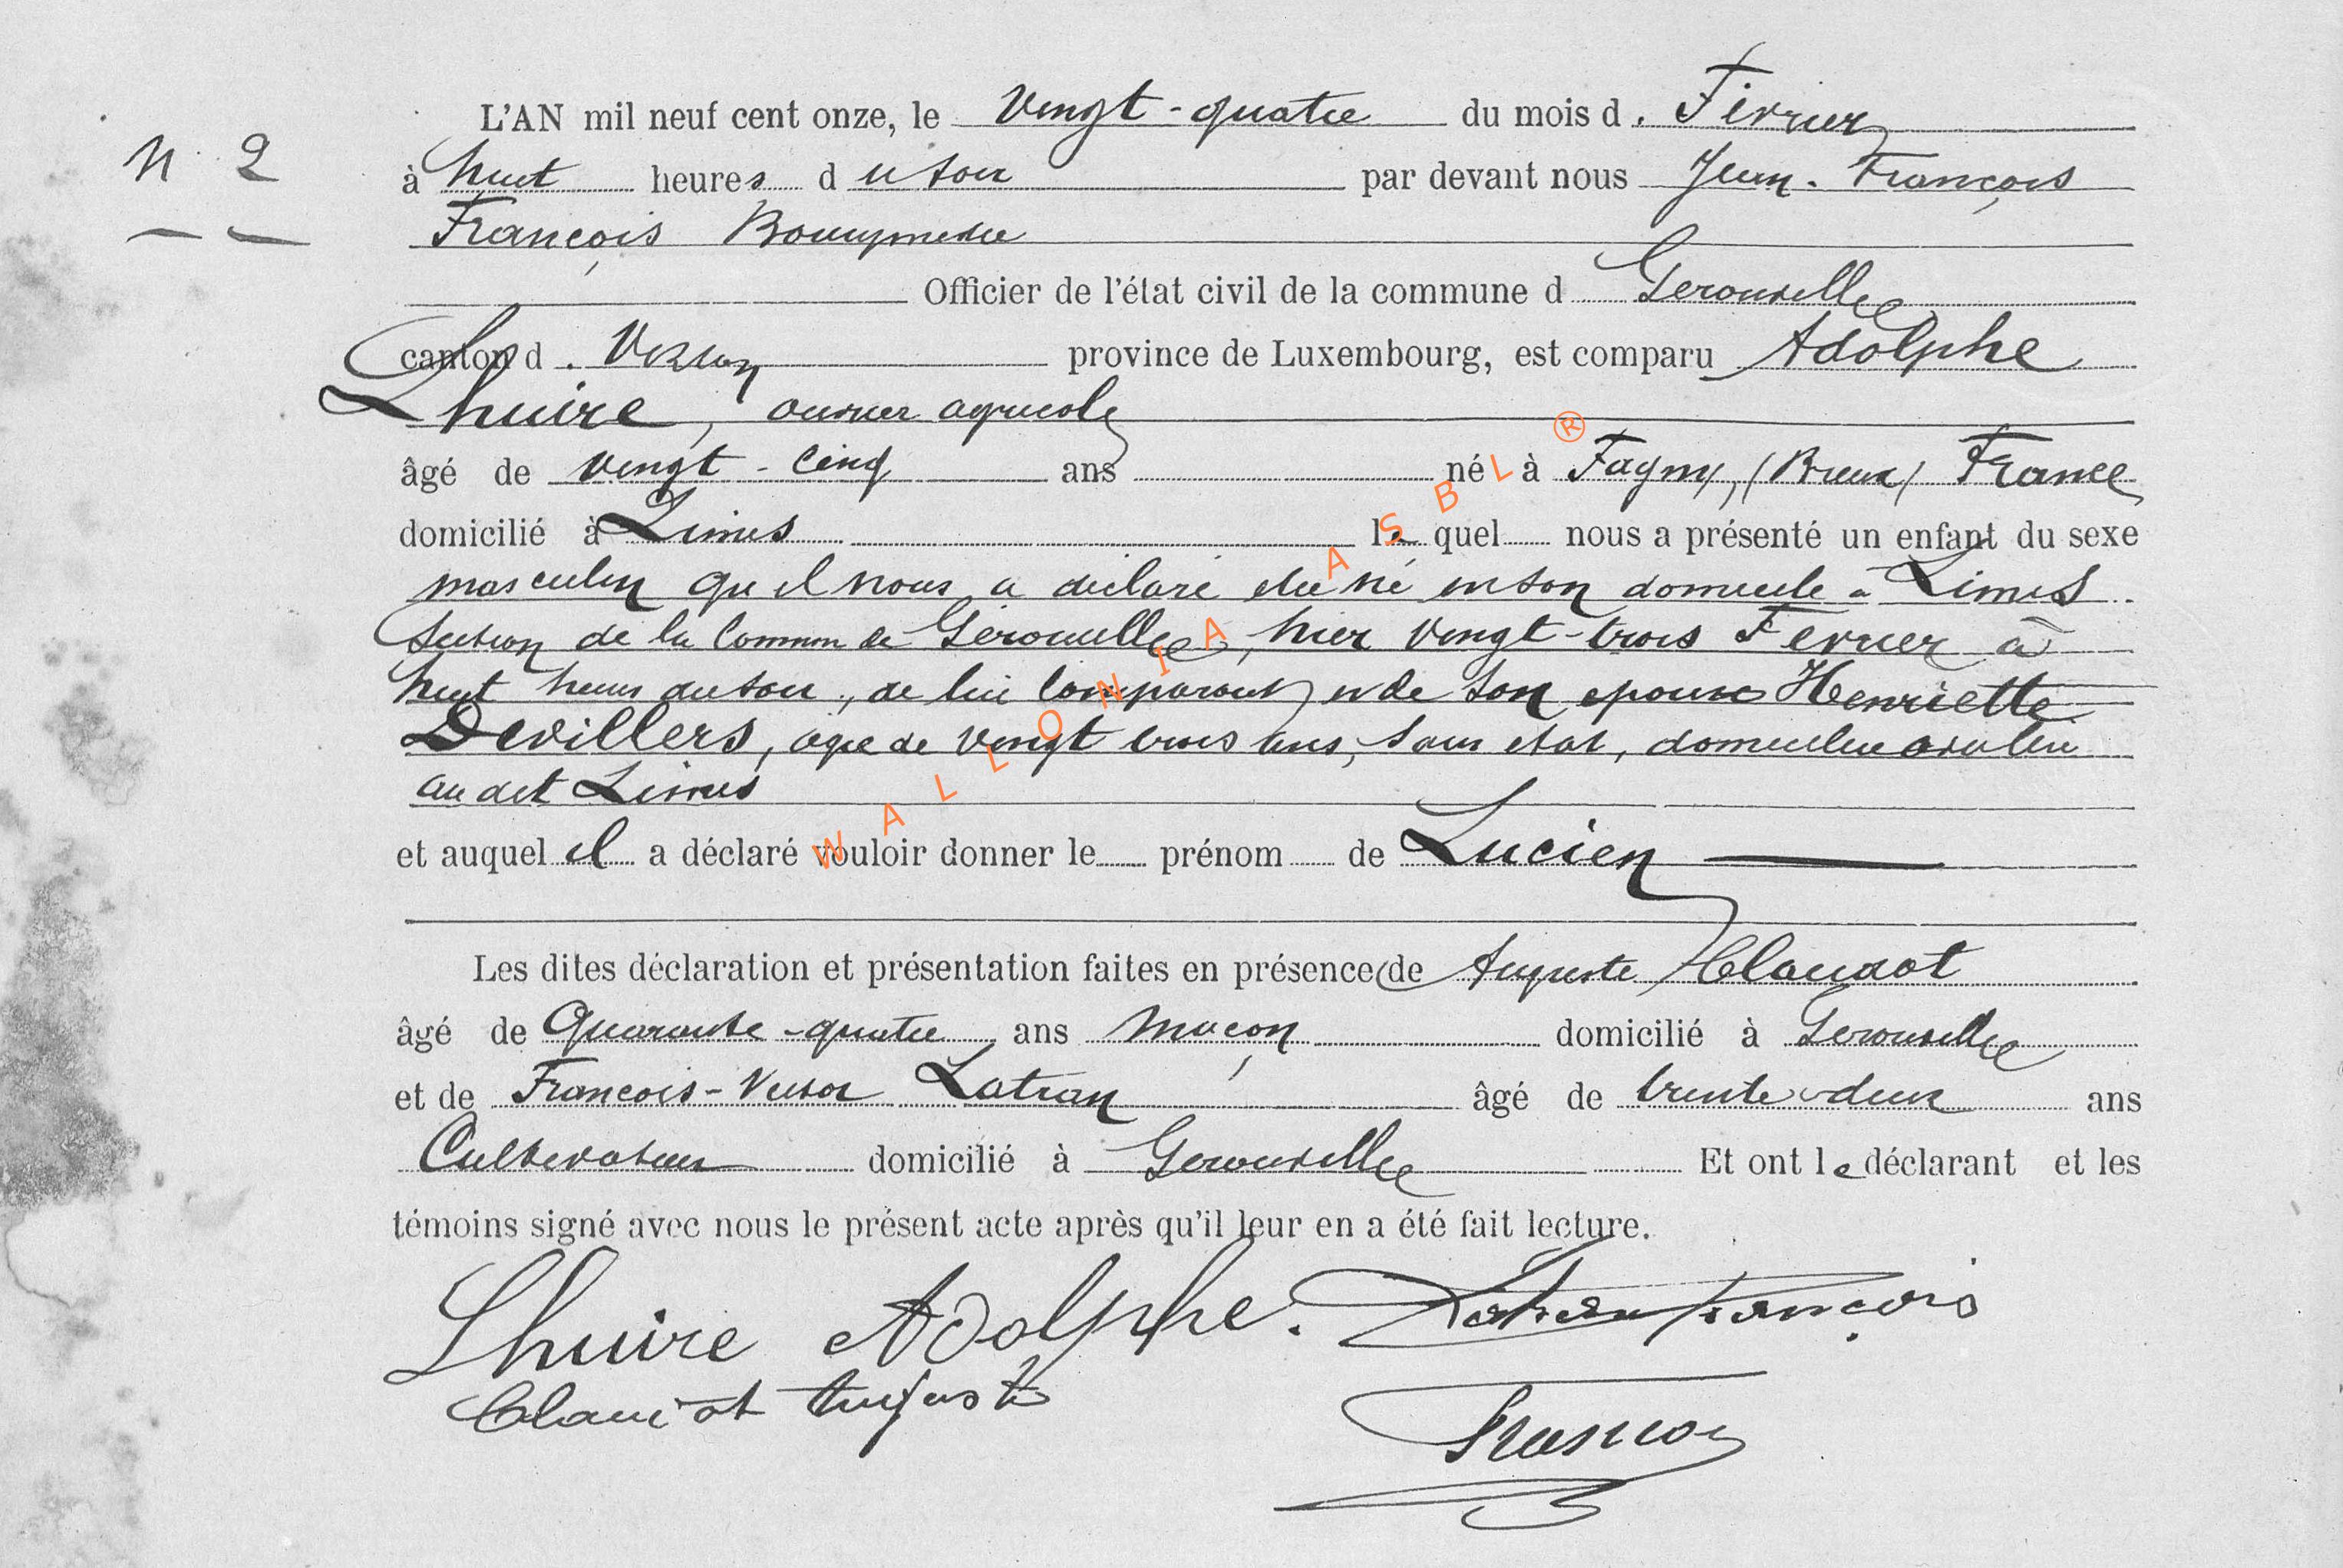 N° 2
L'AN mil neuf cent onze, le Vingt-quatre du mois d. Février
à huit heures du soir par devant nous Jean-François
François
Officier de l'état civil de la commune d Gerouville
canton d. Virton province de Luxembourg, est comparu Adolphe
Lhuire, ouvrier agricole
âgé de vingt-cinq ans né à Fagny, (Breux) France
domicilié à Limes lequel nous a présenté un enfant du sexe
masculin qu'il nous a déclaré être né en son domicile à Limes
Section de la Commune de Gerouville, hier vingt-trois Fevrier à
huit heures du soir, de lui comparant et de son epouse Henriette
Devillers, agée de vingt trois ans, sans etat, domiciliée avec lui
au dit Limes
et auquel il a déclaré vouloir donner le prénom de Lucien
Les dites déclaration et présentation faites en présence de Auguste Claudot
âgé de Quarante-quatre ans maçon domicilié à Gerouville
et de Francois-Victor Latran âgé de trente-deux ans
Cultivateur domicilié à Gerouville Et ont le déclarant et les
témoins signé avec nous le présent acte après qu'il leur en a été fait lecture.
Lhuire Adolphe. Latran François
Claudot August
WALLONIA ASBL ®